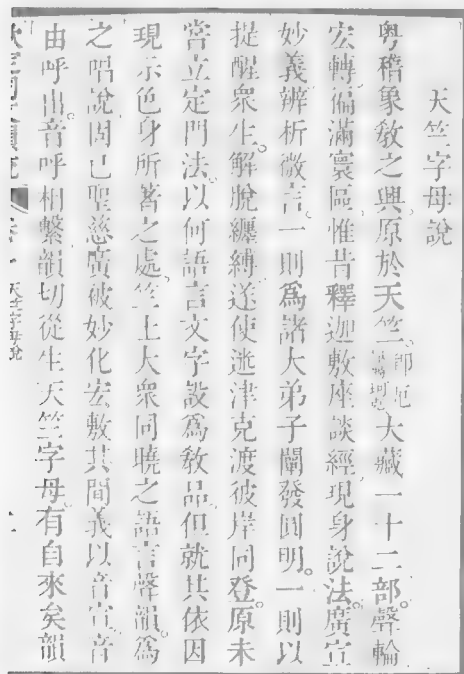 天竺字母說
粵稽象教之興原於天竺卽厄訥特珂克大藏一十二部聲輪
宏轉徧滿寰區惟昔釋迦敷座談經現身說法廣宣
妙義辨析微言一則爲諸大弟子闡發圓明一則以
提醒衆生解脫纏縛遂使迷津克渡彼岸同登原未
嘗立定門法以何語言文字設爲教品但就其依因
現示色身所著之處竺土大衆同曉之語言聲韻爲
之唱說固已聖慈廣被妙化宏敷其間義以音宣音
由呼出音呼相繫韻切從生天竺字母有自來矣韻
欽定同文韻統 卷一 天竺字母說 一